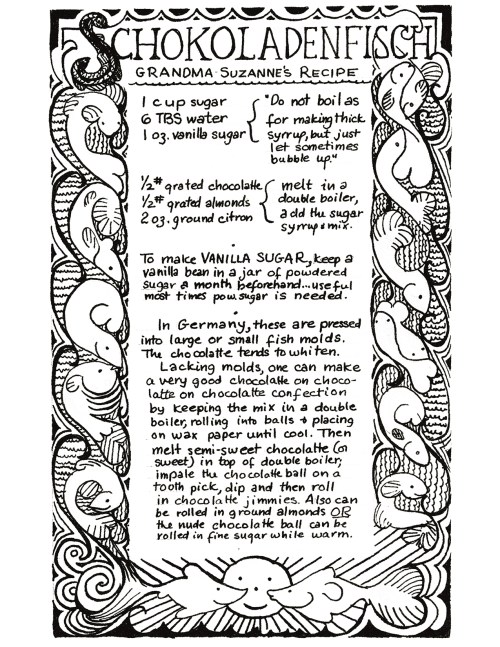 SCHOKOLADENFISCH
GRANDMA SUZANNE'S RECIPE
1 cup sugar
6 TBS water
1 oz. vanilla sugar
"Do not boil as
for making thick
syrrup, but just
let sometimes
bubble up."
1/2# grated chocolatte
1/2# grated almonds
2 oz. ground citron
melt in a
double boiler,
add the sugar
syrrup & mix.
To make VANILLA SUGAR, keep a
vanilla bean in a jar of powdered
sugar a month beforehand...useful
most times pow. sugar is needed.
In Germany, these are pressed
into large or small fish molds.
The chocolatte tends to whiten.
Lacking molds, one can make
a very good chocolatte on choco-
latte on chocolatte confection
by keeping the mix in a double
boiler, rolling into balls & placing
on wax paper until cool. Then
melt semi-sweet chocolatte (or
sweet) in top of double boiler;
impale the chocolatte ball on a
tooth pick, dip and then roll
in chocolatte jimmies. Also can
be rolled in ground almonds OR
the nude chocolatte ball can be
rolled in fine sugar while warm.